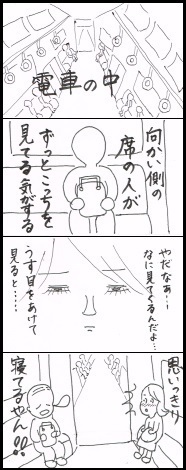 電車の中
向かい側の
席の人が
ずっとこちを
見てる気がする
やだなぁ…
なに見てくるんだよ…
うす目をあけて
見ると……
思いっきり
寝てるやん!!